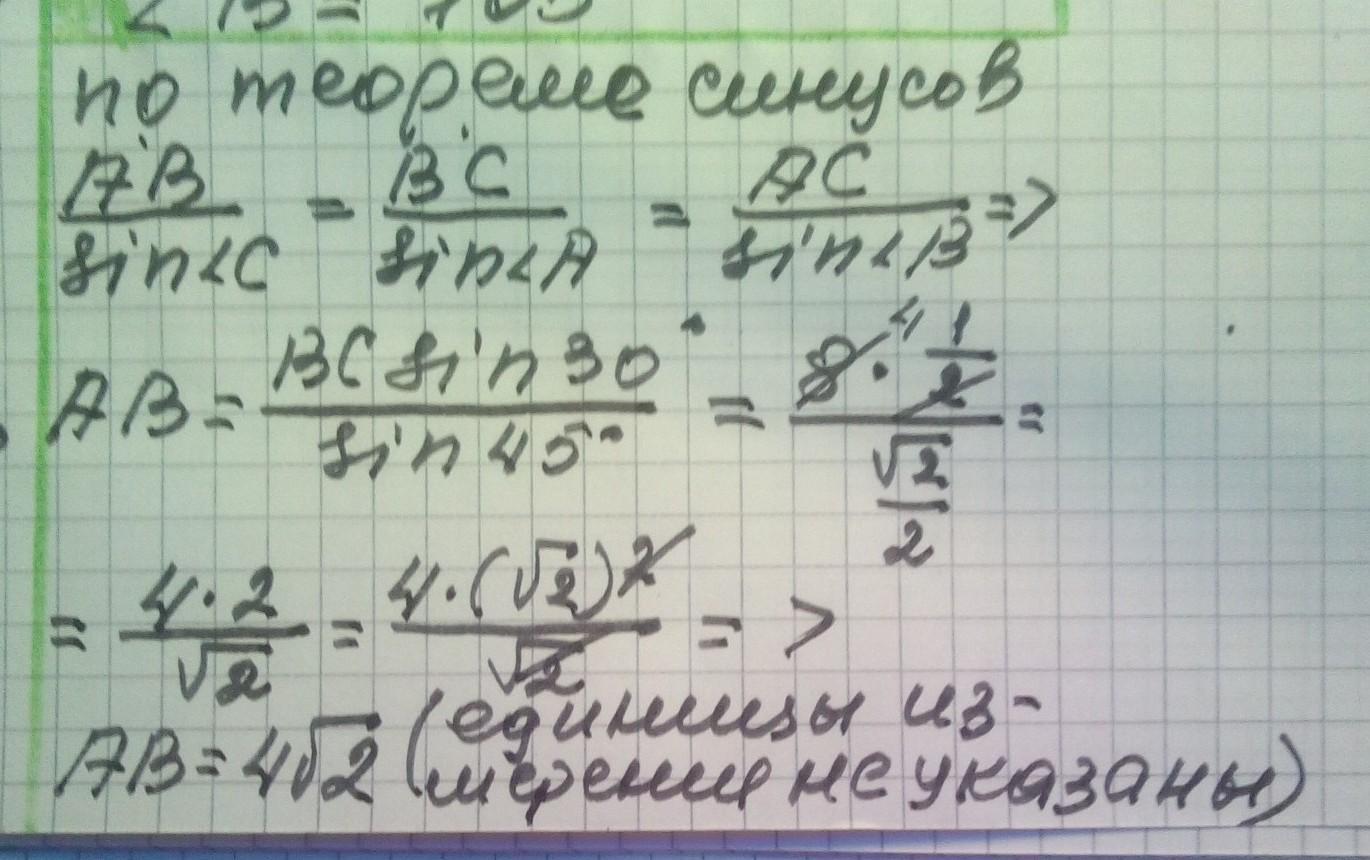 < B = 105
по теореме синусов
AB/sin<C = BC/sin<A = AC/sin<B =>
AB = BC sin 30°/sin 45° = 8·4 1/2/√2/2 =
= 4·2/√2 = 4·(√2)2/√2 = >
AB = 4√2 (единицы из-
мерения не указаны)